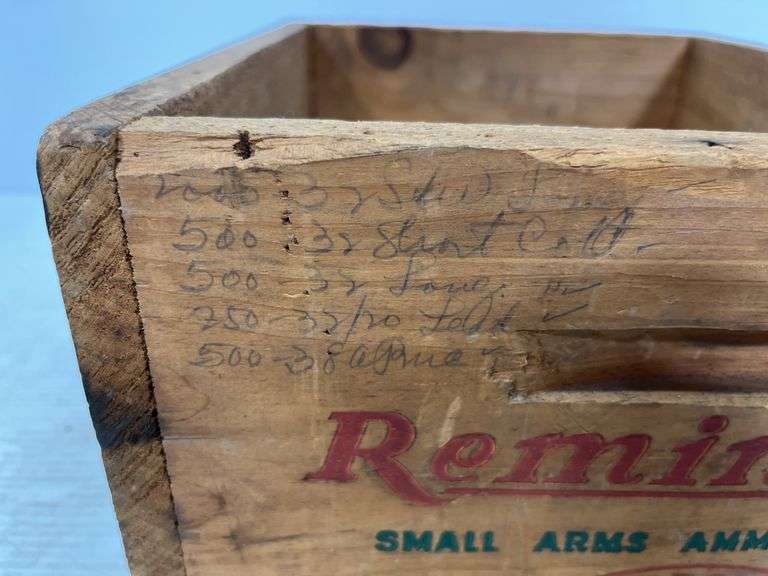 32 S&W
500 - 32 Short Colt
500 - 32 Long
250 - 32/20 Lead ✓
500 - 38
Remin
SMALL ARMS AMM